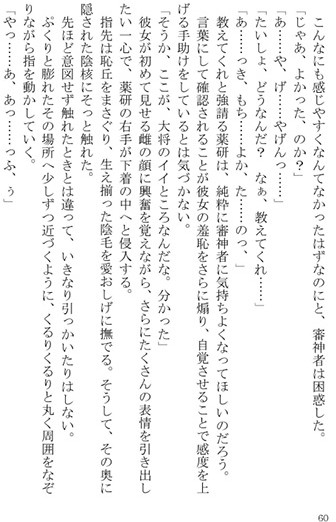 こんなにも感じやすくなんてなかったはずなのにと、審神者は困惑した。
「じゃあ、よかった、のか？」
「あ……や、げ……やげんっ……」
「たいしょ、どうなんだ？　なぁ、教えてくれ……」
「あ……っき、もち……よか、た……のっ、」
教えてくれと強請る薬研は、純粋に審神者に気持ちよくなってほしいのだろう。
言葉にして確認されることが彼女の羞恥をさらに煽り、自覚させることで感度を上
げる手助けをしているとは気づかない。
「そうか、ここが、大将のイイところなんだな。分かった」
彼女が初めて見せる雌の顔に興奮を覚えながら、さらにたくさんの表情を引き出し
たい一心で、薬研の右手が下着の中へと侵入する。
指先は恥丘をまさぐり、生え揃った陰毛を愛おしげに撫でる。そうして、その奥に
隠された陰核にそっと触れた。
先ほど意図せず触れたときとは違って、いきなり引っかいたりはしない。
ぷくりと膨れたその場所へ少しずつ近づくように、くるりくるりと丸く周囲をなぞ
りながら指を動かしていく。
「やっ……あ、あっ……っふ、ぅ」
60